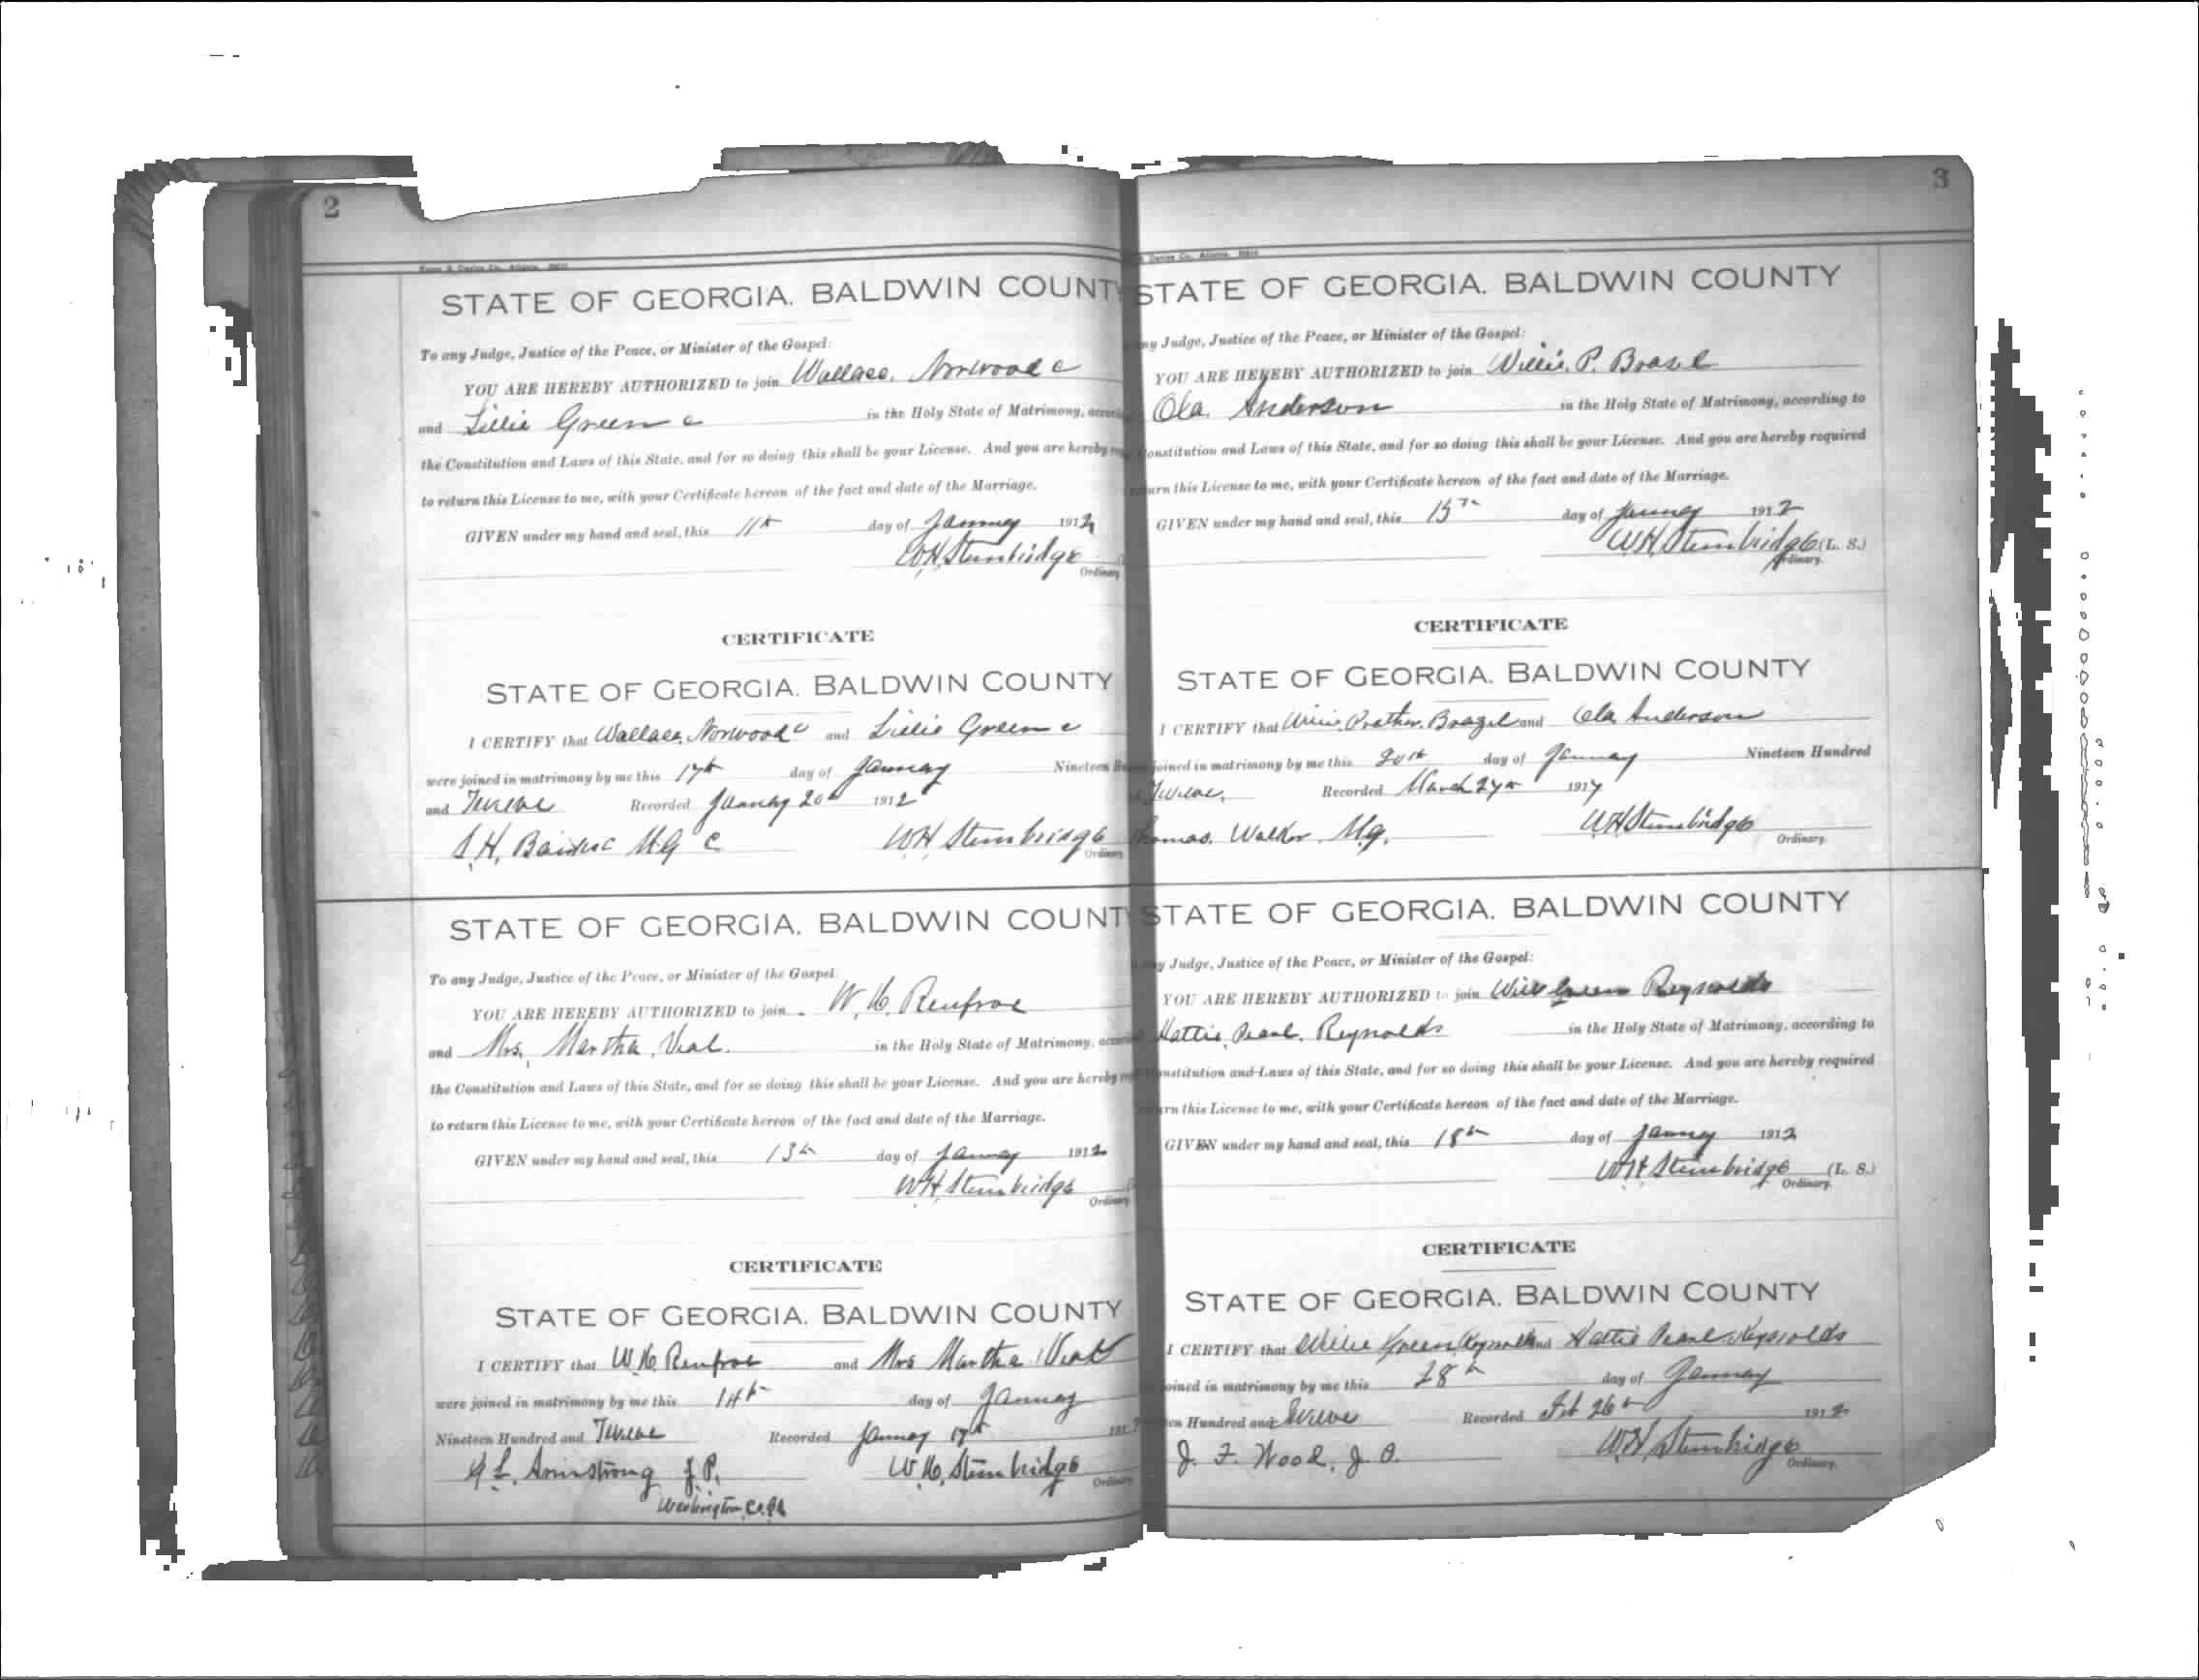 2
STATE OF GEORGIA. BALDWIN COUNTY
To any Judge, Justice of the Peace, or Minister of the Gospel:
YOU ARE HEREBY AUTHORIZED to join Wallace, Norwood c
and Lillie Green c in the Holy State of Matrimony,
the Constitution and Laws of this State, and for so doing this shall be your License. And you are hereby
to return this License to me, with your Certificate hereon of the fact and date of the Marriage.
GIVEN under my hand and seal, this 11th day of January 1912
W.H. Stembridge
Ordinary
CERTIFICATE
STATE OF GEORGIA. BALDWIN COUNTY
I CERTIFY that Wallace, Norwood c and Lillie Green c
were joined in matrimony by me this 17th day of January Nineteen
and Twelve Recorded January 20th 1912
H. M.G. C W.H. Stembridge
Ordinary
STATE OF GEORGIA. BALDWIN COUNT
To any Judge, Justice of the Peace, or Minister of the Gospel:
YOU ARE HEREBY AUTHORIZED to join W. H. Renfroe
and Mrs. Martha Veal. in the Holy State of Matrimony,
the Constitution and Laws of this State, and for so doing this shall be your License. And you are hereby
to return this License to me, with your Certificate hereon of the fact and date of the Marriage.
GIVEN under my hand and seal, this 13th day of January 1912
W.H. Stembridge
Ordinary
CERTIFICATE
STATE OF GEORGIA. BALDWIN COUNTY
I CERTIFY that W. H. Renfroe and Mrs Martha Veal
were joined in matrimony by me this 14th day of January
Nineteen Hundred and Twelve Recorded January 17th 191
L. Armstrong J.P. W. H. Stembridge
Ordinary
Washington, Co. Ga
3
STATE OF GEORGIA. BALDWIN COUNTY
ny Judge, Justice of the Peace, or Minister of the Gospel:
YOU ARE HEREBY AUTHORIZED to join Willie, P. Brazel
Ola. Anderson in the Holy State of Matrimony, according to
onstitution and Laws of this State, and for so doing this shall be your License. And you are hereby required
urn this License to me, with your Certificate hereon of the fact and date of the Marriage.
GIVEN under my hand and seal, this 15th day of January 1912
W.H. Stembridge (L. S.)
Ordinary.
CERTIFICATE
STATE OF GEORGIA. BALDWIN COUNTY
I CERTIFY that Willie Prather Brazel and Ola Anderson
joined in matrimony by me this 20th day of January Nineteen Hundred
Twelve, Recorded March 27th 1917
homas. Walker. M.G. W.H. Stembridge
Ordinary.
STATE OF GEORGIA. BALDWIN COUNTY
y Judge, Justice of the Peace, or Minister of the Gospel:
YOU ARE HEREBY AUTHORIZED to join Will Green Reynolds
Hattie, Pearl, Reynolds in the Holy State of Matrimony, according to
nstitution and Laws of this State, and for so doing this shall be your License. And you are hereby required
rn this License to me, with your Certificate hereon of the fact and date of the Marriage.
GIVEN under my hand and seal, this 18th day of January 1912
W.H. Stembridge (L. S.)
Ordinary.
CERTIFICATE
STATE OF GEORGIA. BALDWIN COUNTY
I CERTIFY that Willie Green Reynolds and Hattie Pearl Reynolds
joined in matrimony by me this 28th day of January
en Hundred and Twelve Recorded Feb 26th 1912
J. F. Wood, J. P. W.H. Stembridge
Ordinary.